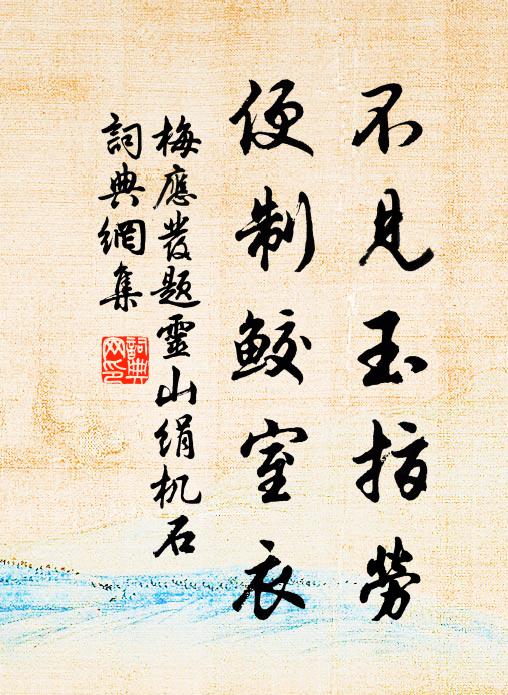 不見玉指勞
便制鮫室衣
梅應發題靈山絹机石
詞典網集
詞典網印